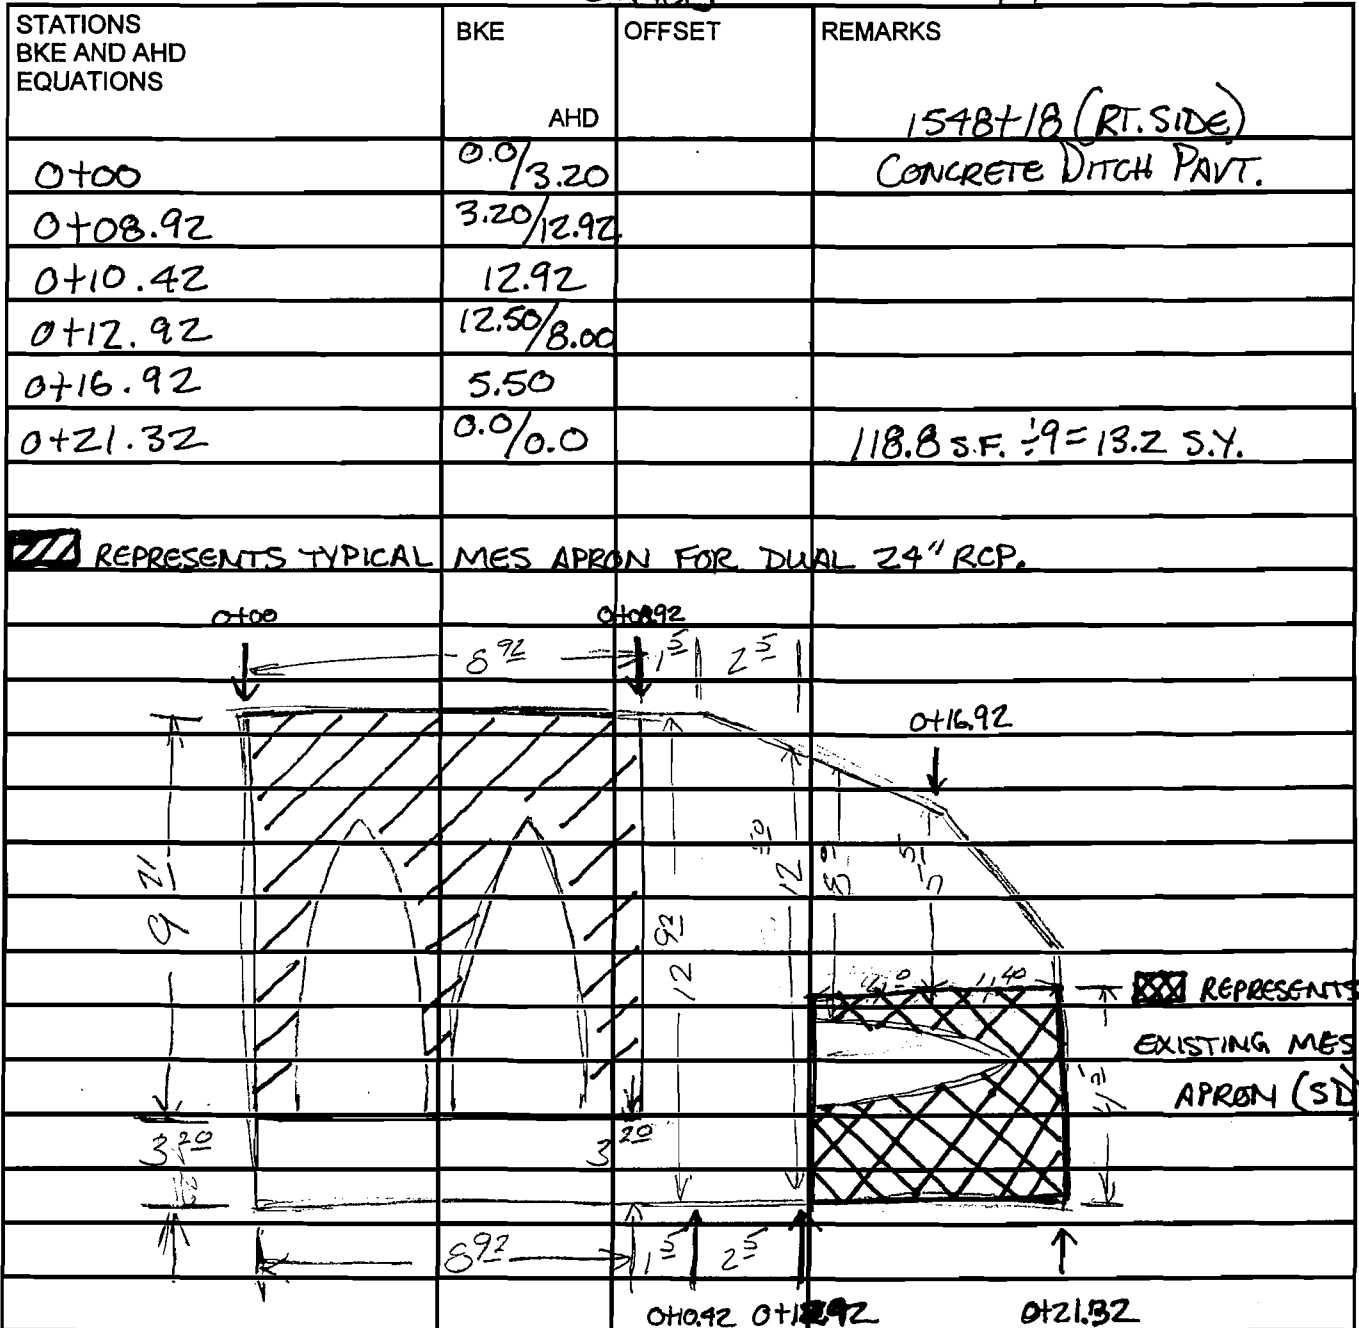 STATIONS
BKE AND AHD
EQUATIONS
BKE
AHD
OFFSET
REMARKS
1548+18 (RT. SIDE)
0+00 0.0/3.20 CONCRETE DITCH PAVT.
0+08.92 3.20/12.92
0+10.42 12.92
0+12.92 12.50/8.00
0+16.92 5.50
0+21.32 0.0/0.0 118.8 S.F. ÷9=13.2 S.Y.
REPRESENTS TYPICAL MES APRON FOR DUAL 24" RCP.
0+00 0+08.92
8 92 1 5 2 5
0+16.92
9 21
12 92
12 50
5 5
REPRESENTS
EXISTING MES
APRON (SD)
3 20 3 20
8 92 1 5 2 5
0+10.42 0+12.92 0+21.32